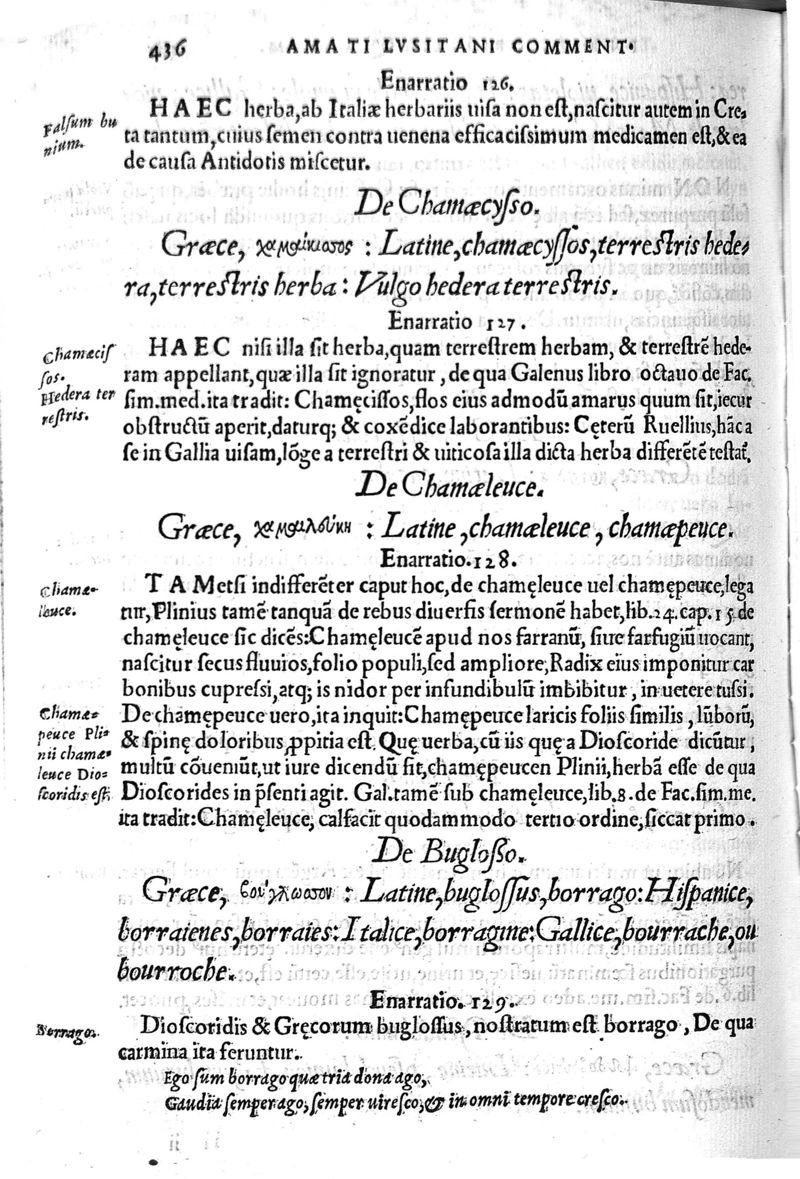 436 AMATI LVSITANI COMMENT.
Enarratio 126.
Falsum bu
nium.
HAEC herba, ab Italiæ herbariis uisa non est, nascitur autem in Cre-
ta tantum, cuius semen contra uenena efficacissimum medicamen est, & ea
de causa Antidotis miscetur.
De Chamæcysso.
Græce, χαμαίκισσος : Latine, chamæcyssos, terrestris hede-
ra, terrestris herba : Vulgo hedera terrestris.
Enarratio 127.
Chamæcis
sos.
Hedera ter
restris.
HAEC nisi illa sit herba, quam terrestrem herbam, & terrestrē hede-
ram appellant, quæ illa sit ignoratur, de qua Galenus libro octauo de Fac.
sim. med. ita tradit: Chamęcissos, flos eius admodū amarus quum sit, iecur
obstructū aperit, daturq; & coxēdice laborantibus: Cęterū Ruellius, hāc a
se in Gallia uisam, lōge a terrestri & uiticosa illa dicta herba differētē testat̄.
De Chamæleuce.
Græce, χαμαιλεύκη : Latine, chamæleuce, chamæpeuce.
Enarratio. 128.
Chamæ-
leuce.
TAMetsi indifferēter caput hoc, de chamęleuce uel chamępeuce, lega
tur, Plinius tamē tanquā de rebus diuersis sermonē habet, lib. 24. cap. 15 de
chamęleuce sic dicēs: Chamęleucē apud nos farranū, siue farfugiū uocant,
nascitur secus fluuios, folio populi, sed ampliore, Radix eius imponitur car
bonibus cupressi, atq; is nidor per infundibulū imbibitur, in uetere tussi.
Chamæ-
peuce Pli-
nii chamæ-
leuce Dio-
scoridis est,
De chamępeuce uero, ita inquit: Chamępeuce laricis foliis similis, lūborū,
& spinę doloribus, ꝓpitia est. Quę uerba, cū iis quę a Dioscoride dicūtur,
multū cōueniūt, ut iure dicendū sit, chamępeucen Plinii, herbā esse de qua
Dioscorides in p̄senti agit. Gal. tamē sub chamęleuce, lib. 8. de Fac. sim. me.
ita tradit: Chamęleuce, calfacit quodammodo tertio ordine, siccat primo.
De Buglosso.
Græce, βούγλωσσον : Latine, buglossus, borrago: Hispanice,
borraienes, borraies: Italice, borragine: Gallice, bourrache, ou
bourroche.
Enarratio. 129.
Borrago.
Dioscoridis & Gręcorum buglossus, nostratum est borrago, De qua
carmina ita feruntur.
Ego sum borrago quæ tria dona ago,
Gaudia semper ago, semper uiresco, & in omni tempore cresco.